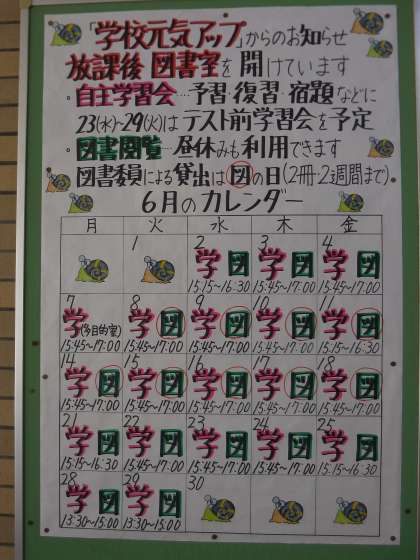 「学校元気アップ」からのお知らせ
放課後 図書室を開けています
・自主学習会…予習・復習・宿題などに
23(水)~29(火)はテスト前学習会を予定
・図書閲覧…昼休みも利用できます
図書委員による貸出は図の日(2冊・2週間まで)
6月のカレンダー
月 火 水 木 金
1 2 3 4
学図 学図 学図
15:15~16:30 15:45~17:00 15:45~17:00
7 8 9 10 11
学(多目的室) 学図 学図 学図 学図
15:45~17:00 15:45~17:00 15:45~17:00 15:45~17:00 15:15~16:30
14 15 16 17 18
学図 学図 学図 学図 学図
15:45~17:00 15:45~17:00 15:45~17:00 15:45~17:00 15:45~17:00
21 22 23 24 25
学図 学図 学図 学図 学図
15:15~16:30 15:45~17:00 15:45~17:00 15:45~17:00 15:15~16:30
28 29 30
学図 学図
13:30~15:00 13:30~15:00